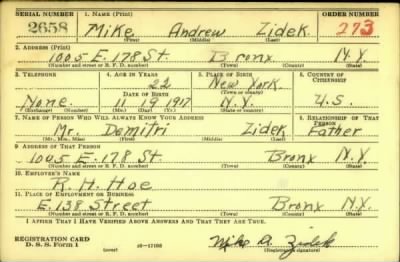 SERIAL NUMBER 1. NAME (Print) ORDER NUMBER
2658 Mike Andrew Zidek 273
(First) (Middle) (Last)
2. ADDRESS (Print)
1005 E. 178 St. Bronx N.Y.
(Number and street or R. F. D. number) (Town) (County) (State)
3. TELEPHONE 4. AGE IN YEARS 5. PLACE OF BIRTH 6. COUNTRY OF CITIZENSHIP
22 New York
DATE OF BIRTH (Town or county)
None 11 19 1917 N.Y. U.S.
(Exchange) (Number) (Mo.) (Day) (Yr.) (State or country)
7. NAME OF PERSON WHO WILL ALWAYS KNOW YOUR ADDRESS 8. RELATIONSHIP OF THAT PERSON
Mr. Demitri Zidek Father
(Mr., Mrs., Miss) (First) (Middle) (Last)
9. ADDRESS OF THAT PERSON
1005 E. 178 St. Bronx N.Y.
(Number and street or R. F. D. number) (Town) (County) (State)
10. EMPLOYER'S NAME
R. H. Hoe
11. PLACE OF EMPLOYMENT OR BUSINESS
E. 138 Street Bronx N.Y.
(Number and street or R. F. D. number) (Town) (County) (State)
I AFFIRM THAT I HAVE VERIFIED ABOVE ANSWERS AND THAT THEY ARE TRUE.
REGISTRATION CARD
D. S. S. Form 1 (over) 16-17105 Mike A. Zidek
(Registrant's signature)